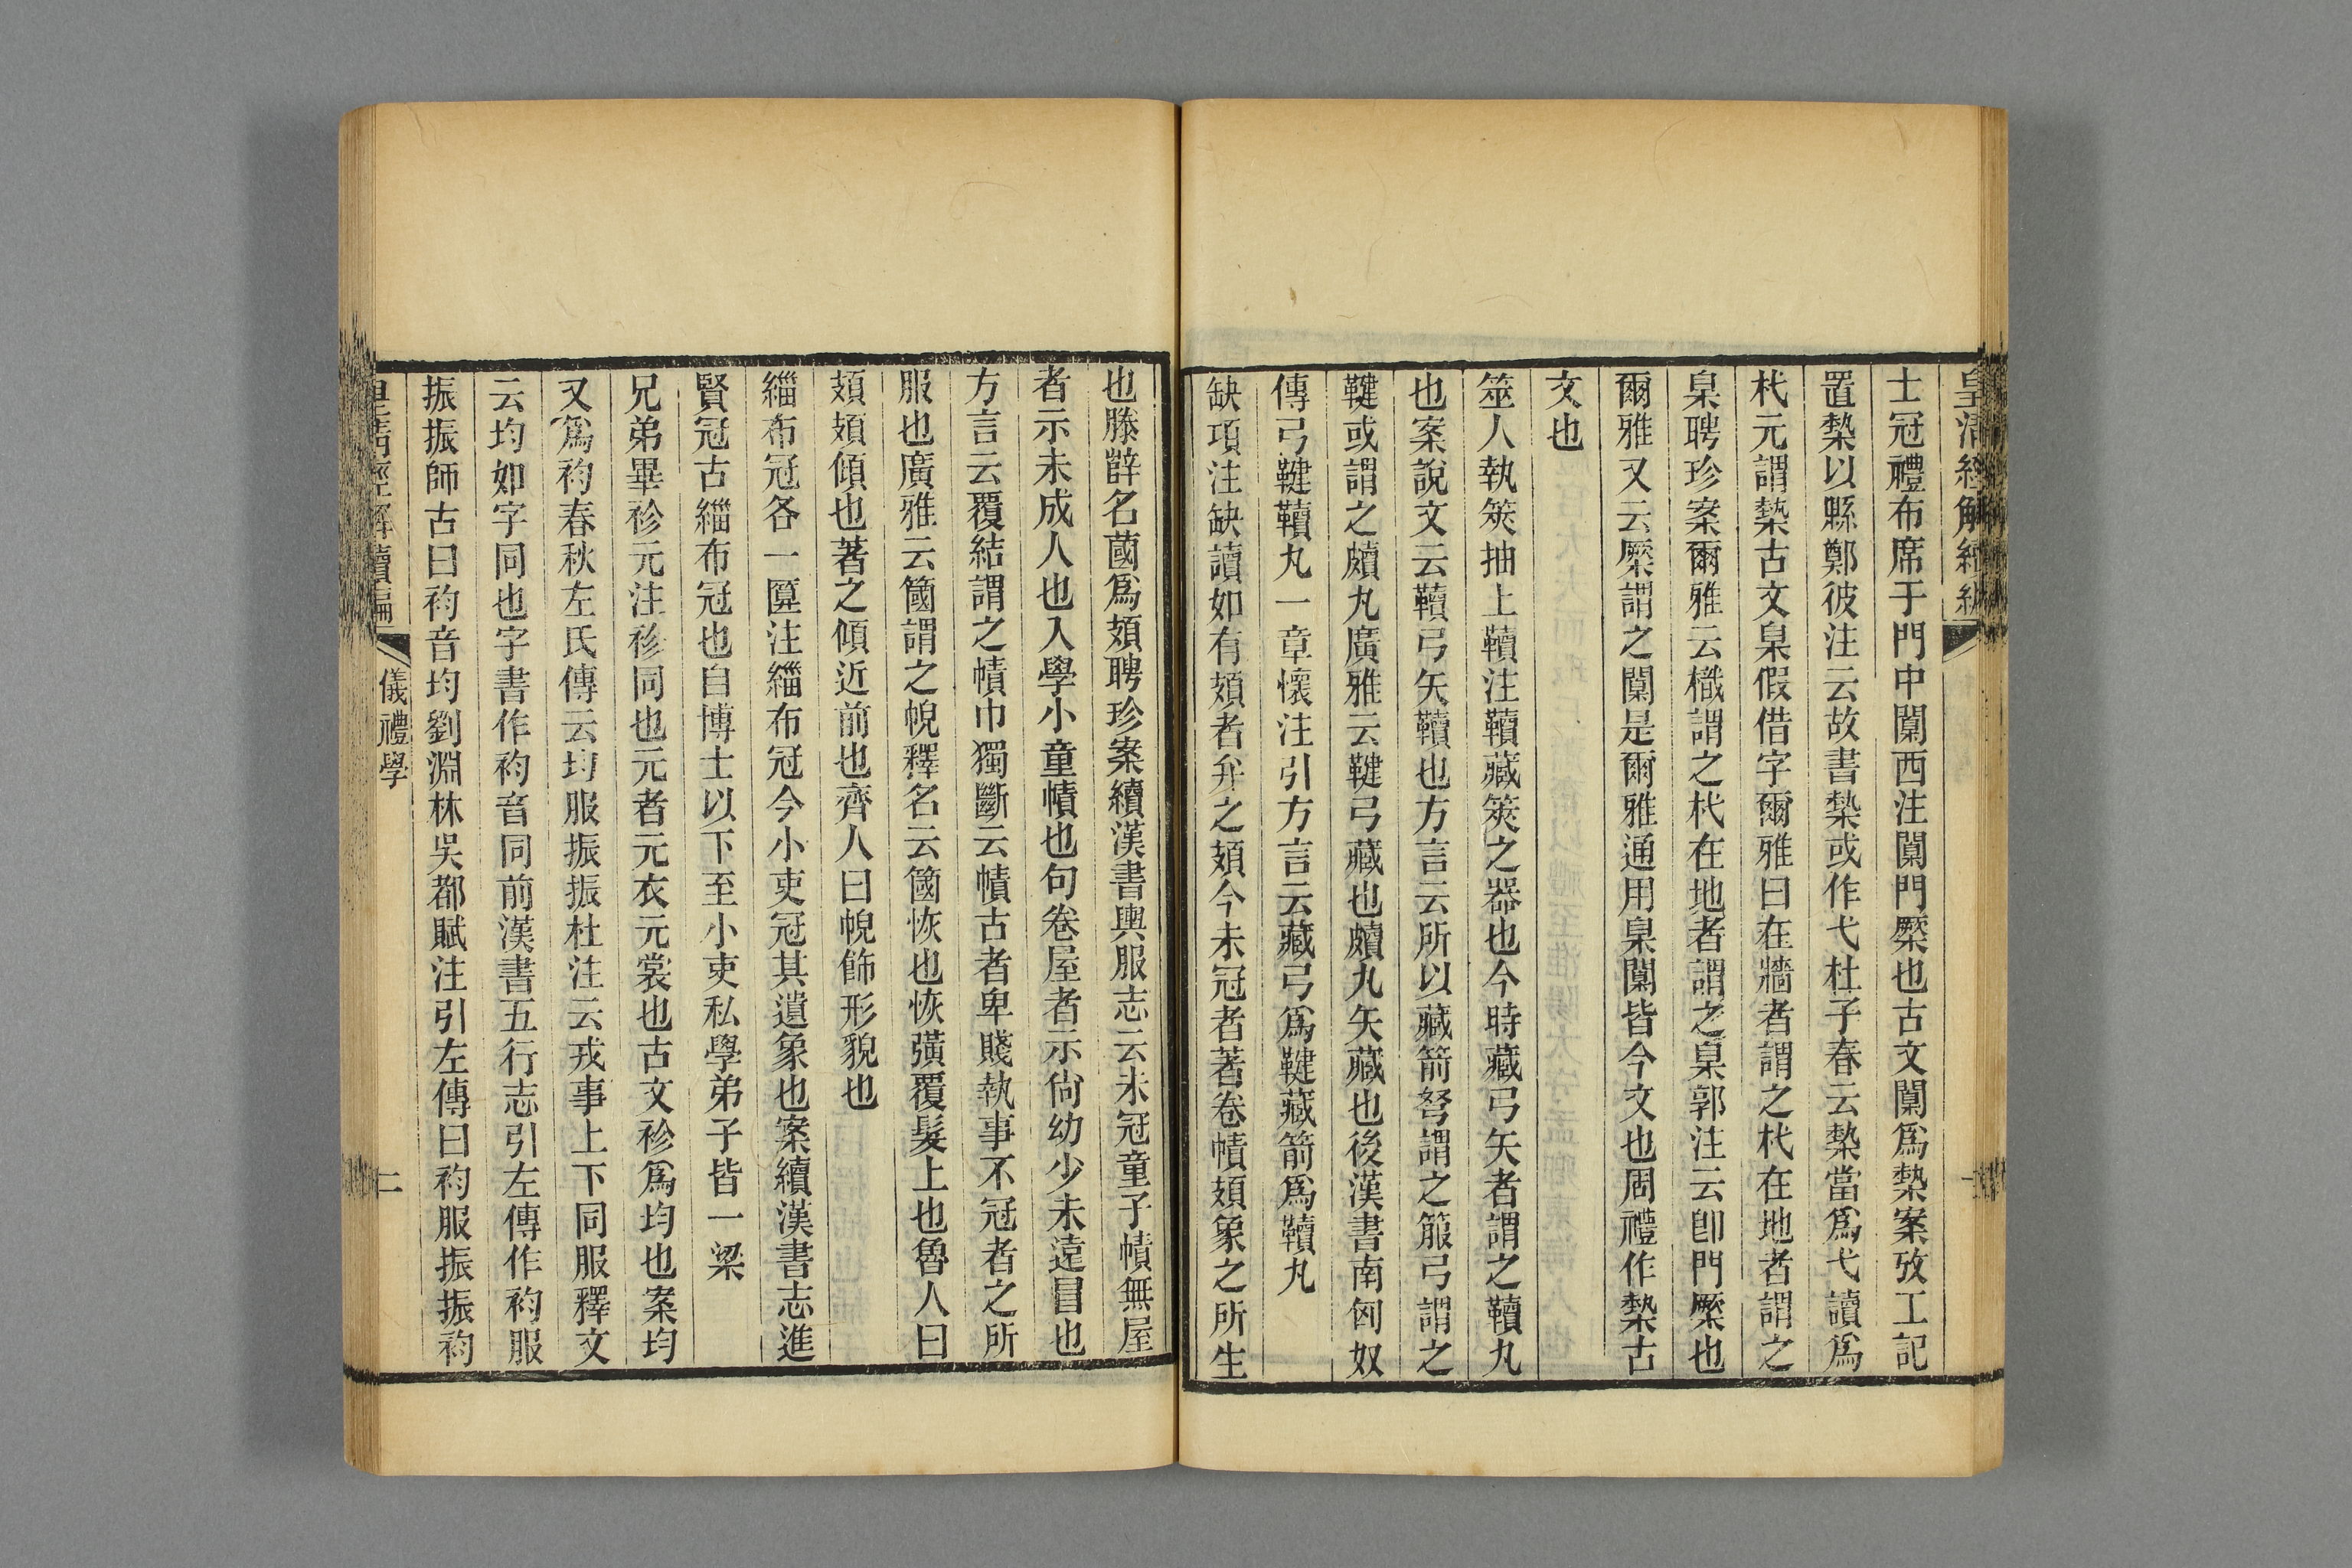 皇清經解續編
士冠禮布席于門中闑西注闑門橜也古文闑爲槷案攷工記
置槷以縣鄭彼注云故書槷或作弋杜子春云槷當爲弋讀爲
杙元謂槷古文臬假借字爾雅曰在牆者謂之杙在地者謂之
臬聘珍案爾雅云樴謂之杙在地者謂之臬郭注云卽門橜也
爾雅又云橜謂之闑是爾雅通用臬闑皆今文也周禮作槷古
文也
筮人執筴抽上韇注韇藏筴之器也今時藏弓矢者謂之韇丸
也案說文云韇弓矢韇也方言云所以藏箭弩謂之箙弓謂之
鞬或謂之皾丸廣雅云鞬弓藏也皾丸矢藏也後漢書南匈奴
傳弓鞬韇丸一章懷注引方言云藏弓爲鞬藏箭爲韇丸
缺項注缺讀如有頍者弁之頍今未冠者著卷幘頍象之所生
也滕薛名蔮爲頍聘珍案續漢書輿服志云未冠童子幘無屋
者示未成人也入學小童幘也句卷屋者示尙幼少未遠冒也
方言云覆結謂之幘巾獨斷云幘古者卑賤執事不冠者之所
服也廣雅云簂謂之帨釋名云簂恢也恢彉覆髮上也魯人曰
頍頍傾也著之傾近前也齊人曰帨飾形貌也
緇布冠各一匴注緇布冠今小吏冠其遺象也案續漢書志進
賢冠古緇布冠也自博士以下至小吏私學弟子皆一梁
兄弟畢袗元注袗同也元者元衣元裳也古文袗爲均也案均
又爲袀春秋左氏傳云均服振振杜注云戎事上下同服釋文
云均如字同也字書作袀音同前漢書五行志引左傳作袀服
振振師古曰袀音均劉淵林吳都賦注引左傳曰袀服振振袀
皇清經解續編
儀禮學
二